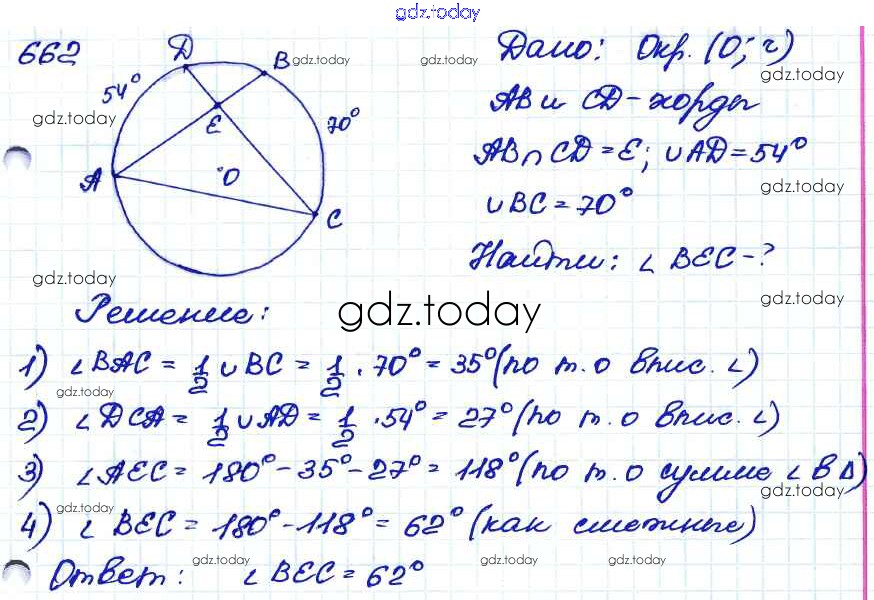 gdz.today
662
D
B
gdz.today
54°
gdz.today
E
70°
A
O
C
gdz.today
Дано: Окр. (O; r)
gdz.today
gdz.today
AB и CD - хорды
AB ∩ CD = E; ∪AD = 54°
gdz.today
∪BC = 70°
Найти: ∠ BEC - ?
gdz.today
Решение:
gdz.today
1) ∠BAC = 1/2 ∪BC = 1/2 · 70° = 35° (по т. о впис. ∠)
gdz.today
2) ∠DCA = 1/2 ∪AD = 1/2 · 54° = 27° (по т. о впис. ∠)
3) ∠AEC = 180° - 35° - 27° = 118° (по т. о сумме ∠ в Δ)
gdz.today
gdz.today
4) ∠ BEC = 180° - 118° = 62° (как смежные)
gdz.today
gdz.today
gdz.today
Ответ: ∠ BEC = 62°